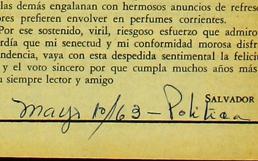 las demás engalanan con hermosos anuncios de refres
ores prefieren envolver en perfumes corrientes.
Por ese sostenido, viril, riesgoso esfuerzo que admiro
rdía que mi senectud y mi conformidad morosa disfr
ndencia, vaya con esta despedida sentimental la felici
y el voto sincero por que cumpla muchos años más
u siempre lector y amigo
SALVADOR
Mayo 10/63 - Política